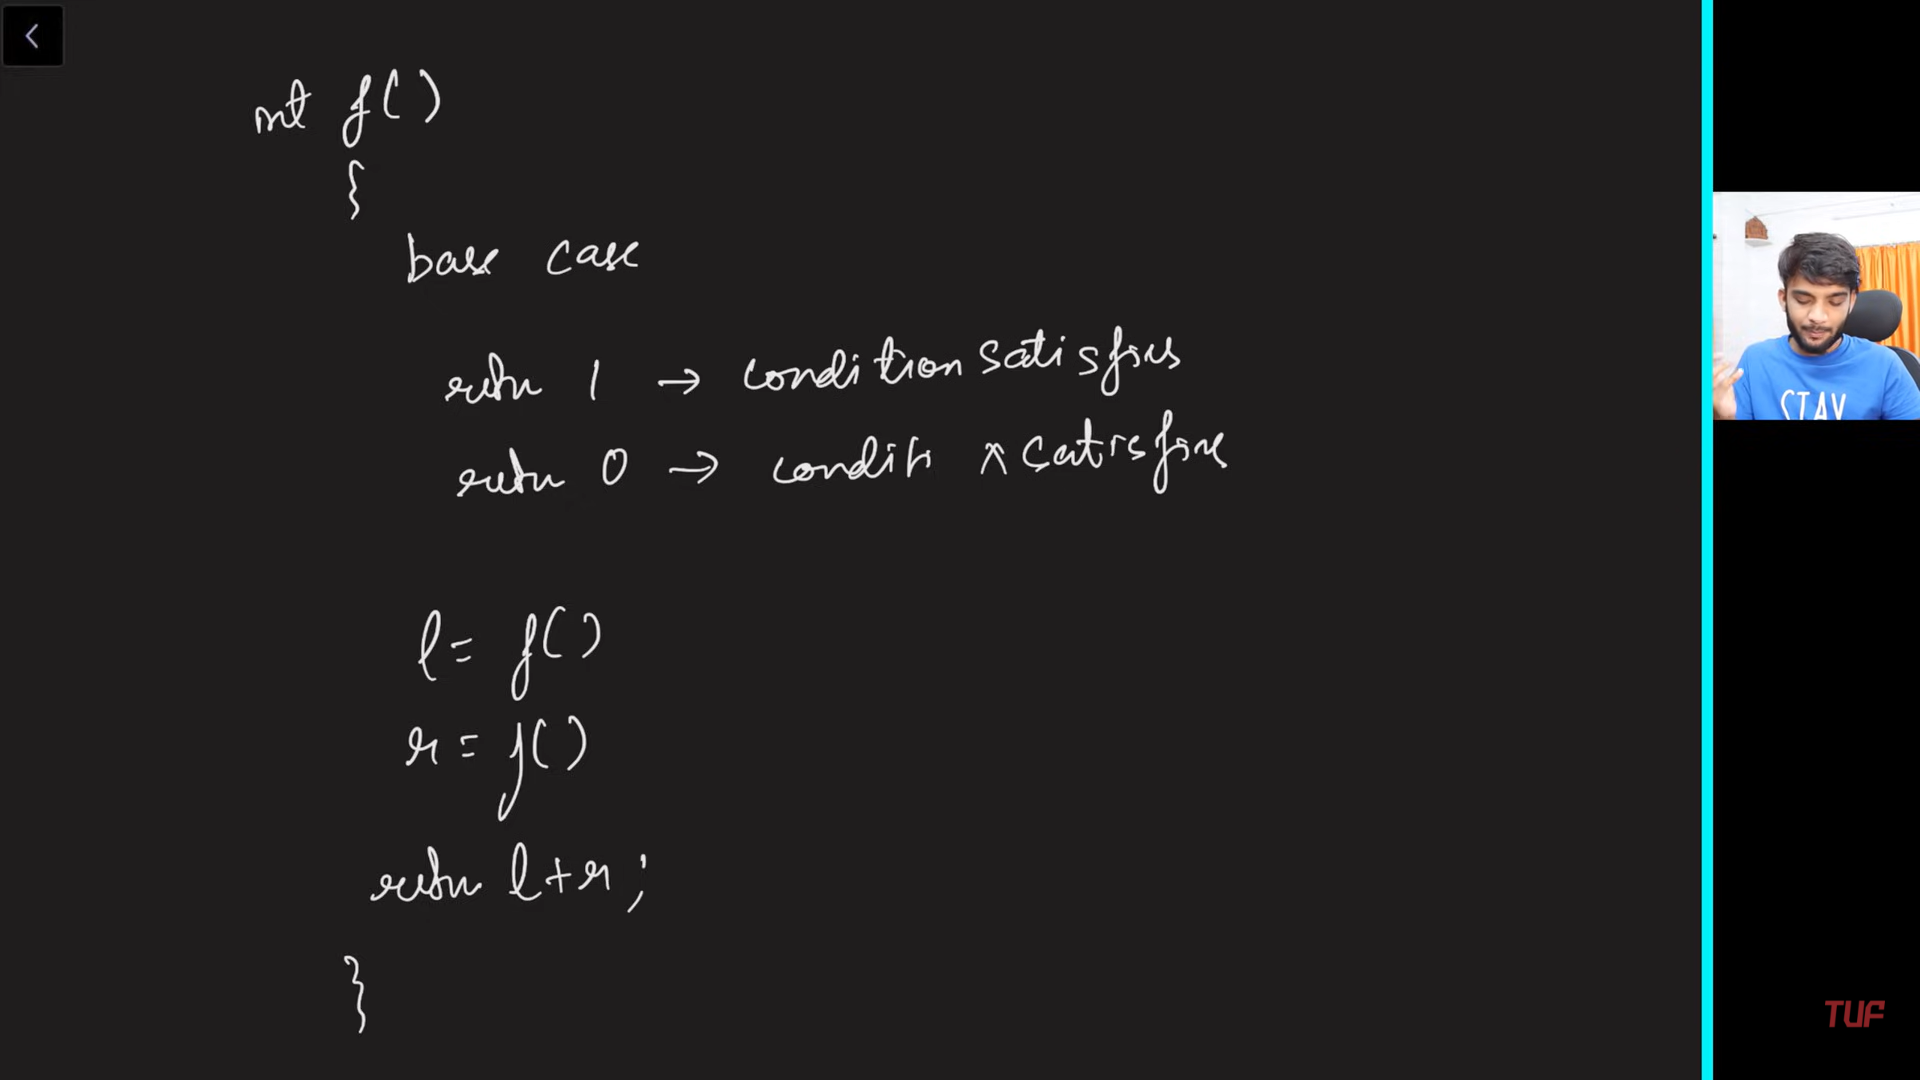 int f()
{
base case
return 1 → condition satisfies
return 0 → conditi x satisfies
l = f()
r = f()
return l+r;
}
STAY
TUF